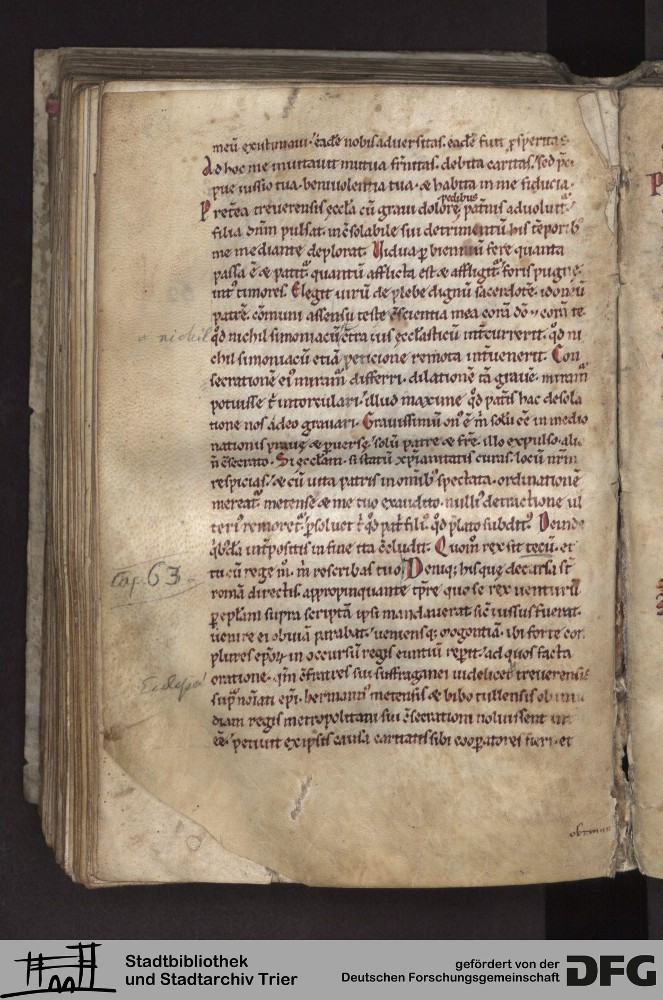 meū existimaui · eadē nobis aduersitas · eadē fuit ꝓsperitas
Ad hoc me inuitauit mutua fr̄nitas · debita caritas · sed p̄ci
pue iussio tua · beniuolentia tua · & habita in me fiducia ·
pedibus
Pret̄ea treuerensis eccl̄a cū graui dolore pat̄nis aduoluit᷑
filia dn̄m pulsat · incōsolabile sui detrimentū his tēporib᷒
me mediante deplorat · Vidua ꝑ bienniū fere quanta
passa ē & patit᷑ quantū afflicta est & affligit᷑ foris pugnę ·
int᷒ timores · Elegit uirū de plebe dignū sacerdotē · idoneū
patrē · cōmuni assensu teste cōscientia mea corā dō · corā te ·
nichil
qd̄ nichil simoniacū c̄tra ius eccl̄asticū int̄currerit · qd̄ ni
chil simoniacū etiā peticione remota int̄uenerit · Con
secrationē ei᷒ miram᷑ differri · dilationē tā grauē · miram᷑
potuisse t̄ intorculari · illud maxime qd̄ pat̄is hac desola
tione nos adeo grauari · Grauissimū om̄ē m̄ solū ēē in medio
nationis praue & peruerse · solū patre & fr̄e · illo expulso · alio
n̄ cōsecrato · Si eccl̄am · si statū xp̄ianitatis curas · locū nr̄m
respicias · & cū uita patris in omīb᷒ spectata · ordinationē
mereat᷑ · metense & me tuo exaudito · nulli᷒ detractione ul
teri᷒ remoret᷑ · ꝑsoluet t̄ qd̄ pat̄ fili᷒ · qd̄ p̄lato subdit᷒ · Deinde
qb᷒dā int̄positis in fine ita cōcludit · Quom̄ rex sit tecū · et
tu cū rege m̄ · m̄ rescribas tuo Deniq; bisque decursis st̄
Cap. 63
romā directis · appropinquante tp̄re quo se rex uenturū
ꝑ ep̄lam supra scriptā ipsi mandauerat sic̄ iussus fuerat
uenire ei obuiā parabat · ueniensq; mogontiā · ibi forte cō
plures ep̄os in occursū regis euntiū repit · ad quos facta
oratione · qm̄ cōfratres sui suffraganei uidelicet treuerensis
sup̄ noīati ep̄i · hermann᷒ metensis & bibo tullensis ob inui
diam regis metropolitani sui cōsecrationi noluissent int̄
ēē · petiuit ex ipsis causa caritatis sibi cooꝑatores fieri · et
Stadtbibliothek
und Stadtarchiv Trier
gefördert von der
Deutschen Forschungsgemeinschaft
DFG